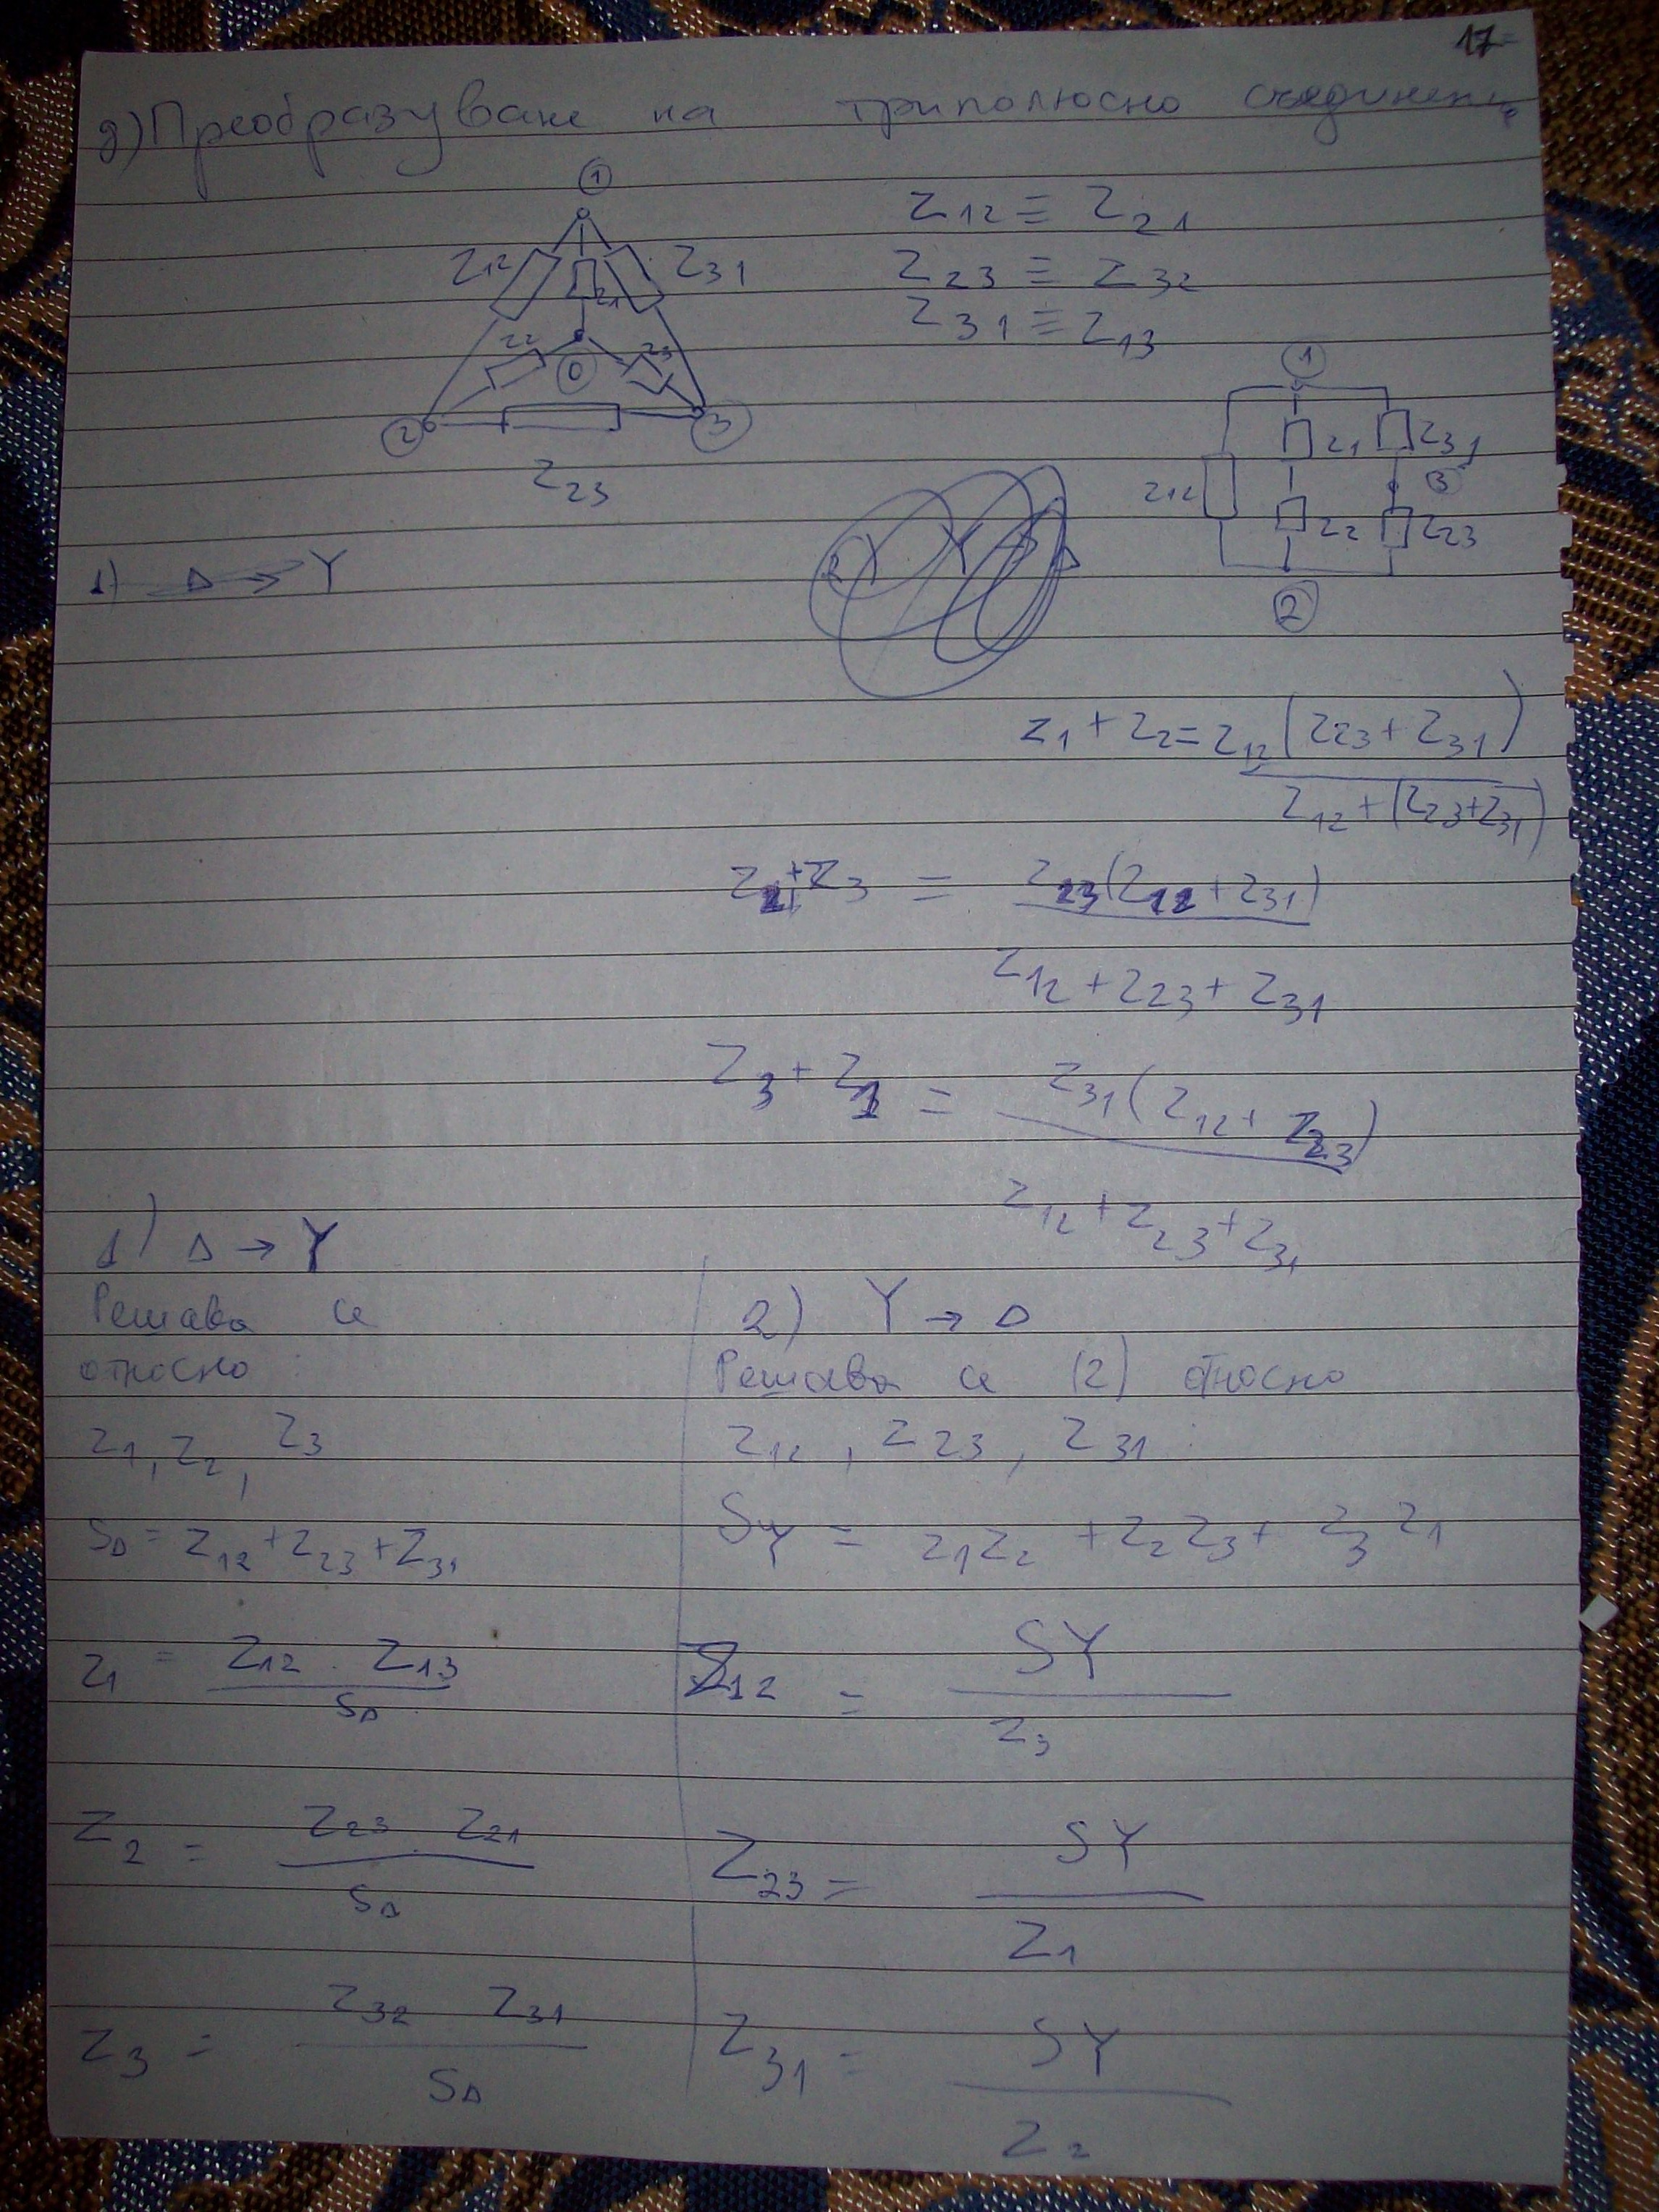 17
д) Преобразуване на триполюсно съединение
①
Z12 ≡ Z21
Z12 Z31
Z23 ≡ Z32
Z1
Z31 ≡ Z13
Z2 Z3
0
① 
② ③
Z1 Z31
Z23
Z12 ③
Z2 Z23
1) Δ → Y
2) Y → Δ
②
Z1 + Z2 = Z12 (Z23 + Z31)
Z12 + (Z23 + Z31)
Z2 + Z3 = Z23 (Z12 + Z31)
Z12 + Z23 + Z31
Z3 + Z1 = Z31 (Z12 + Z23)
Z12 + Z23 + Z31
1) Δ → Y
Решава се
относно:
Z1, Z2, Z3
SΔ = Z12 + Z23 + Z31
Z1 = Z12 . Z13
SΔ
Z2 = Z23 . Z21
SΔ
Z3 = Z32 Z31
SΔ
2) Y → Δ
Решава се (2) относно
Z12, Z23, Z31:
SY = Z1Z2 + Z2Z3 + Z3Z1
Z12 = SY
Z3
Z23 = SY
Z1
Z31 = SY
Z2